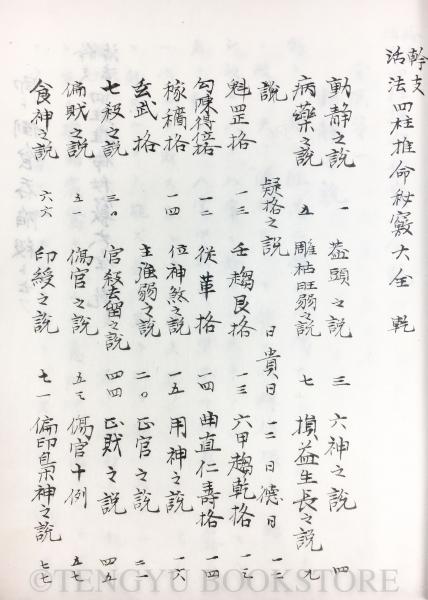 幹支
活法四柱推命秘竅大全 乾
動静之説 一 蓋頭之説 三 六神之説 四
病薬之説 五 雕枯旺弱之説 七 損益生長之説 九
説 疑格之説 日貴日 一二 日德日 一二
魁罡格 一三 壬趨艮格 一三 六甲趨乾格 一三
勾陳得位格 一二 従革格 一四 曲直仁壽格 一四
稼穡格 一四 位神煞之説 一五 用神之説 一六
玄武格 主強弱之説 二〇 正官之説 二一
七殺之説 三〇 官殺去留之説 四四 正財之説 四五
偏財之説 五一 傷官之説 五三 傷官十例 五七
食神之説 六六 印綬之説 七一 偏印梟神之説 七七
©TENGYU BOOKSTORE